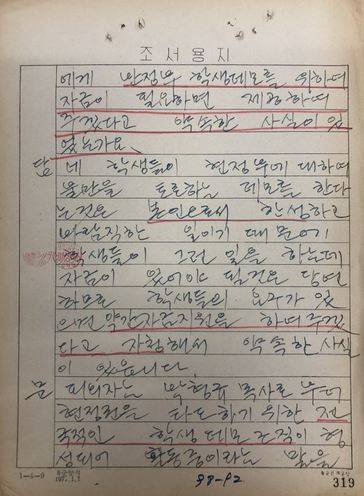 조서용지
에게 반정부 학생데모를 위하여
자금이 필요하면 제공하여
주겠다고 약속한 사실이 있
었는가요.
답 네 학생들이 현정부에 대하여
불만을 토로하는 데모를 한다
는것은 본인으로써 찬성하고
바람직한 일이기 때문에
학생들이 그런 일을 하는데
자금이 있어야 될것은 당연
하므로 학생들의 요구가 있
으면 약간자금지원을 하여주겠
다고 자청해서 약속한 사실
이 있읍니다.
문 피의자는 박형규 목사로 부터
현정권을 타도하기 위한 전
국적인 학생 데모 조직이 형
성되어 활동중이라는 말을
1-6-9
98-12
319